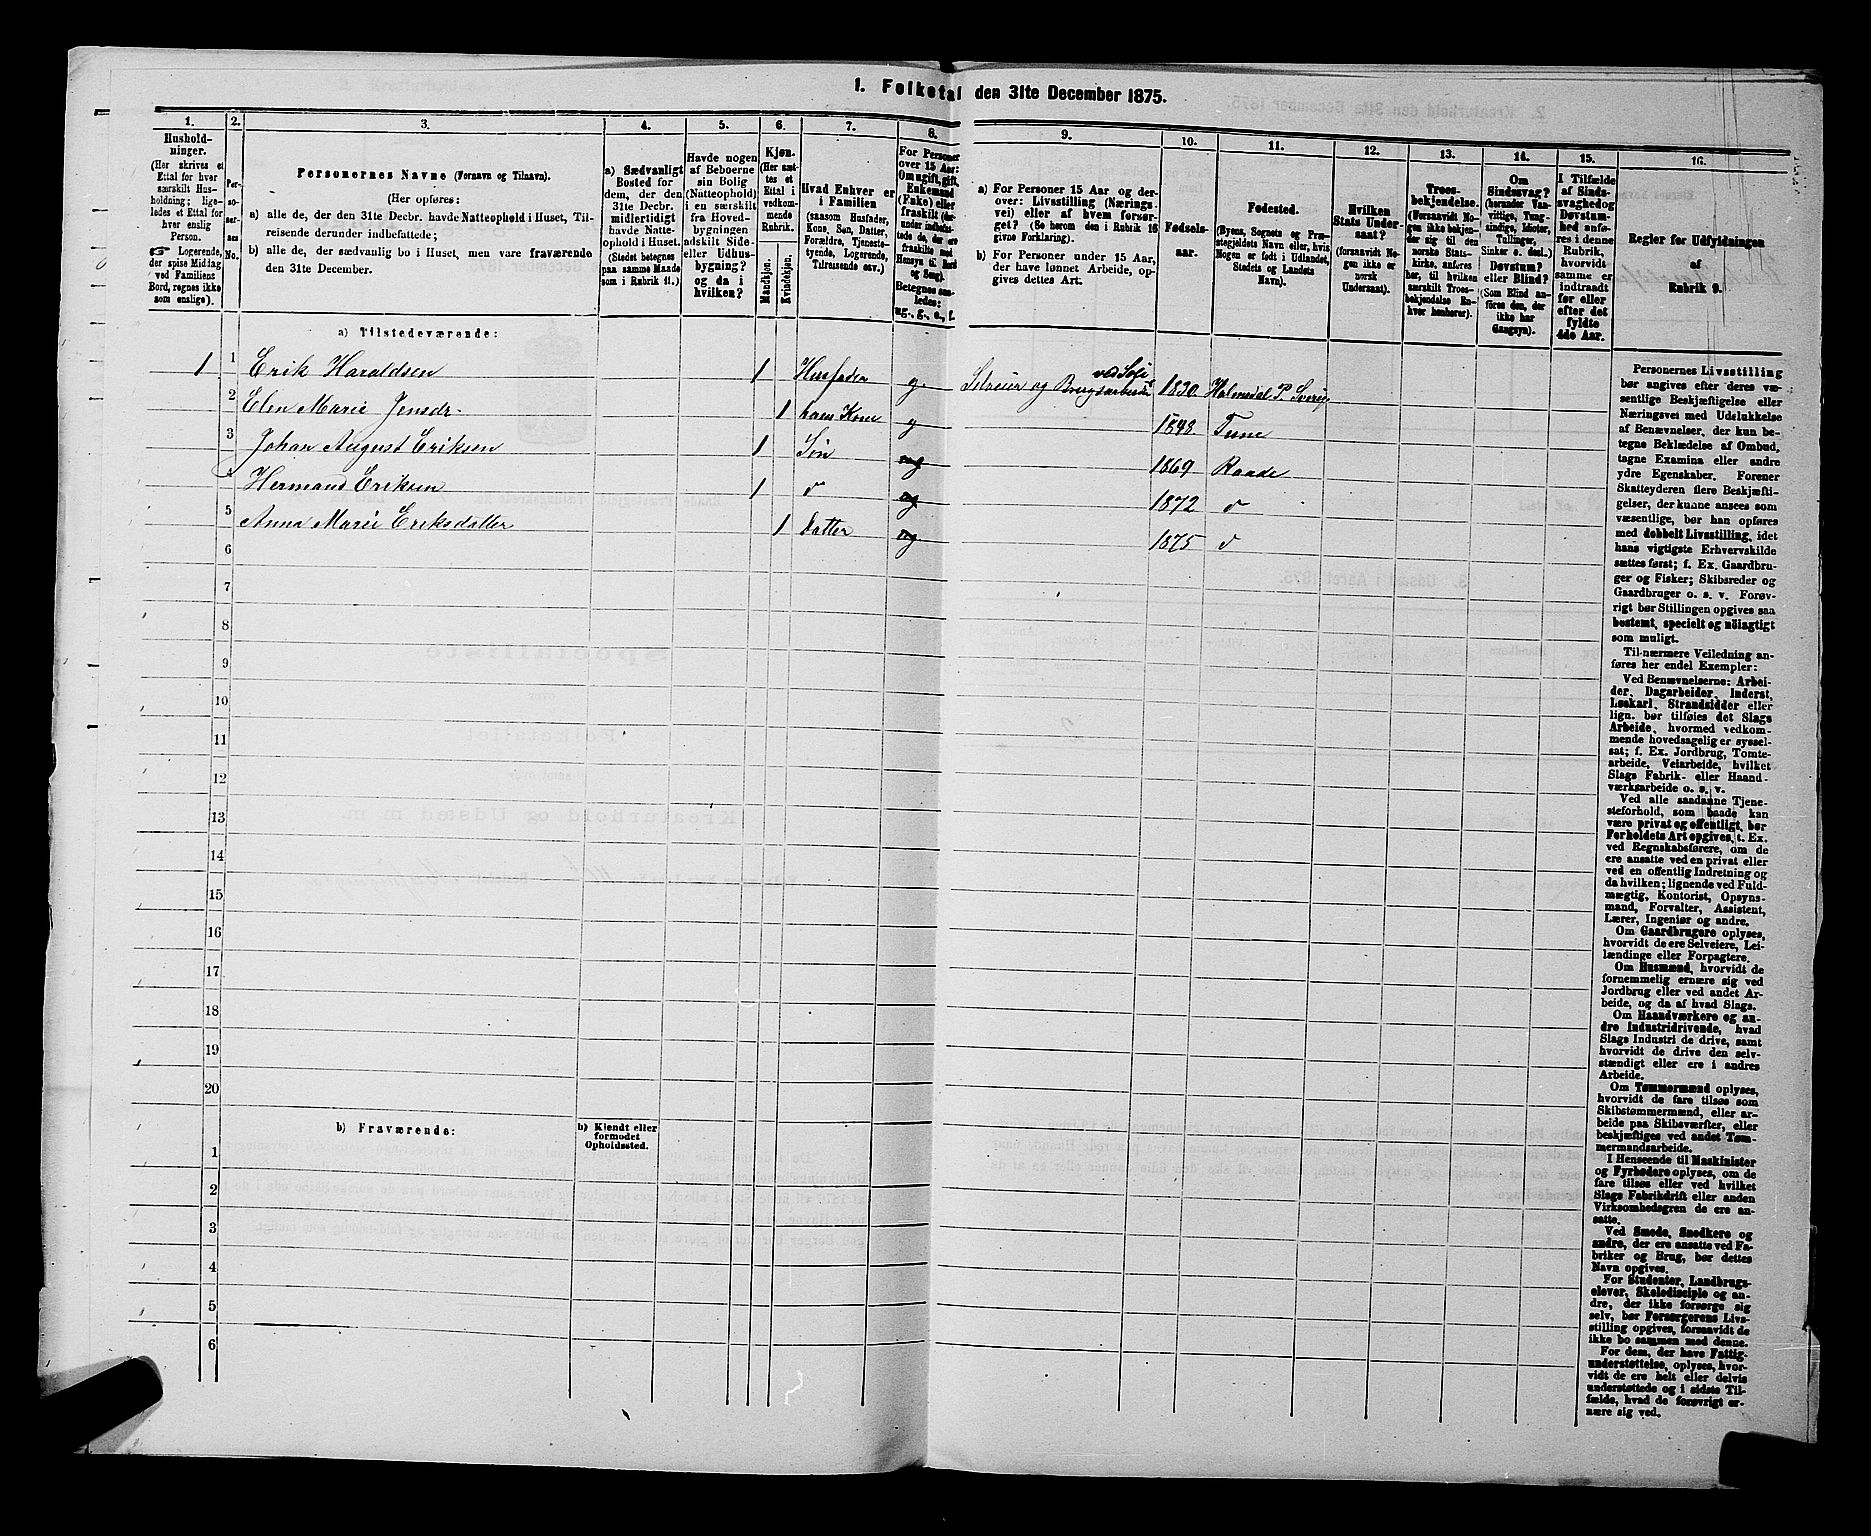 1. Folketal den 31te December 1875.
1. 2. 3. 4. 5. 6. 7. 8. 9. 10. 11. 12. 13. 14. 15. 16.
Hushold-
ninger.
(Her skrives et
Ettal for hver
særskilt Hus-
holdning; lige-
ledes et Ettal for
hver enslig
Person.
☞ Logerende,
der spise Middag
ved Familiens
Bord, regnes ikke
som enslige).
Per-
so-
ner-
nes
No.
Personernes Navne (Fornavn og Tilnavn).
(Her opføres:
a) alle de, der den 31te Decbr. havde Natteophold i Huset, Til-
reisende derunder indbefattede;
b) alle de, der sædvanlig bo i Huset, men vare fraværende
den 31te December.
a) Sædvanligt
Bosted for
dem, der den
31te Decbr.
midlertidigt
havde Natte-
ophold i Huset.
(Stedet betegnes
paa samme Maade
som i Rubrik 11.)
Havde nogen
af Beboerne
sin Bolig
(Natteophold)
i en særskilt
fra Hoved-
bygningen
adskilt Side-
eller Udhus-
bygning?
og da i
hvilken?
Kjøn.
(Her sæt-
tes et
Ettal i
vedkom-
mende
Rubrik.
Mandkjøn.
Kvindekjøn.
Hvad Enhver er
i Familien
(saasom Husfader,
Kone, Søn, Datter,
Forældre, Tjeneste-
tyende, Logerende,
Tilreisende osv.)
For Personer
over 15 Aar:
Om ugift, gift,
Enkemand
(Enke) eller
fraskilt (der-
under indbefat-
tede de, der ere
fraskilte med
Hensyn til Bord
og Seng).
Betegnes saa-
ledes:
ug., g., e., f.
a) For Personer 15 Aar og der-
over: Livsstilling (Nærings-
vei) eller af hvem forsør-
get? (Se herom den i Rubrik 16
givne Forklaring).
b) For Personer under 15 Aar,
der have lønnet Arbeide, op-
gives dettes Art.
Fødsels-
aar.
Fødested.
(Byens, Sognets og Præ-
stegjeldets Navn eller, hvis
Nogen er født i Udlandet,
Stedets og Landets
Navn).
Hvilken
Stats Under-
saat?
(forsaavidt No-
gen ikke er
norsk
Undersaat).
Troes-
bekjendelse.
(Forsaavidt No-
gen ikke bekjen-
der sig til den
norske Stats-
kirke, anføres
her, til hvilken
særskilt Troes-
bekjendelse En-
hver henhører).
Om
Sindssvag?
(herunder Van-
vittige, Tung-
sindige, Idioter,
Tullinger,
Sinker o. desl.).
Døvstum?
eller Blind?
(Som Blind an-
føres den, der
ikke har
Gangsyn).
I Tilfælde
af Sinds-
svaghed og
Døvstum-
hed anfø-
res i denne
Rubrik,
hvorvidt
samme er
indtraadt
før eller
efter det
fyldte
4de Aar.
Regler for Udfyldningen
af
Rubrik 9.
a) Tilstedeværende:
1 1 Erik Haraldsen 1 Husfader g. Selveier og Brugsarbeider ved Soli 1830. Holmedal P. Sverig
2 Elen Marie Jensdr. 1 hans Kone g 1848. Tune
3 Johan August Eriksen 1 Søn ug 1869 Raade
4 Hermand Eriksen 1 d ug 1872 d
5 Anna Marie Eriksdatter 1 Datter ug 1875 d
6
7
8
9
10
11
12
13
14
15
16
17
18
19
20
b) Fraværende:
b) Kjendt eller
formodet
Opholdssted.
1
2
3
4
5
6
Personernes Livsstilling
bør angives efter deres væ-
sentlige Beskjæftigelse eller
Næringsvei med Udelukkelse
af Benævnelser, der kun be-
tegne Beklædelse af Ombud,
tagne Examina eller andre
ydre Egenskaber. Forener
Skatteyderen flere Beskjæfti-
gelser, der kunne ansees som
væsentlige, bør han opføres
med dobbelt Livsstilling, idet
hans vigtigste Erhvervskilde
sættes først; f. Ex. Gaardbru-
ger og Fisker; Skibsreder og
Gaardbruger o. s. v. Forøv-
rigt bør Stillingen opgives saa
bestemt, specielt og nøiagtigt
som muligt.
Til nærmere Veiledning an-
føres her endel Exempler:
Ved Benævnelserne: Arbei-
der, Dagarbeider, Inderst,
Løskarl, Strandsidder eller
lign. bør tilføies det Slags
Arbeide, hvormed vedkom-
mende hovedsagelig er syssel-
sat; f. Ex. Jordbrug, Tomte-
arbeide, Veiarbeide, hvilket
Slags Fabrik- eller Haand-
værksarbeide o. s. v.
Ved alle saadanne Tjene-
steforhold, som baade kan
være privat og offentligt, bør
Forholdets Art opgives, t. Ex.
ved Regnskabsførere, om de
ere ansatte ved en privat eller
ved en offentlig Indretning og
da hvilken; lignende ved Fuld-
mægtig, Kontorist, Opsyns-
mand, Forvalter, Assistent,
Lærer, Ingeniør og andre.
Om Gaardbrugere oplyses,
hvorvidt de ere Selveiere, Lei-
lændinge eller Forpagtere.
Om Husmænd, hvorvidt de
fornemmelig ernære sig ved
Jordbrug eller ved andet Ar-
beide, og da af hvad Slags.
Om Haandværkere og an-
dre Industridrivende, hvad
Slags Industri de drive, samt
hvorvidt de drive den selv-
stændigt eller ere i andres
Arbeide.
Om Tømmermænd oplyses,
hvorvidt de fare tilsøs som
Skibstømmermænd, eller ar-
beide paa Skibsværfter, eller
beskjæftiges ved andet Tøm-
mermandsarbeide.
I Henseende til Maskinister
og Fyrbødere oplyses, om de
fare tilsøs eller ved hvilket
Slags Fabrikdrift eller anden
Virksomhedsgren de ere an-
satte.
Ved Smede, Snedkere og
andre, der ere ansatte ved Fa-
briker og Brug, bør dettes
Navn opgives.
For Studenter, Landbrugs-
elever, Skoledisciple og an-
dre, der ikke forsørge sig
selv, bør Forsørgerens Livs-
stilling opgives, forsaavidt de
ikke bo sammen med denne.
For dem, der have Fattig-
understøttelse, oplyses, hvor-
vidt de ere helt eller delvis
understøttede og i sidste Til-
fælde, hvad de forøvrigt er-
nære sig ved.